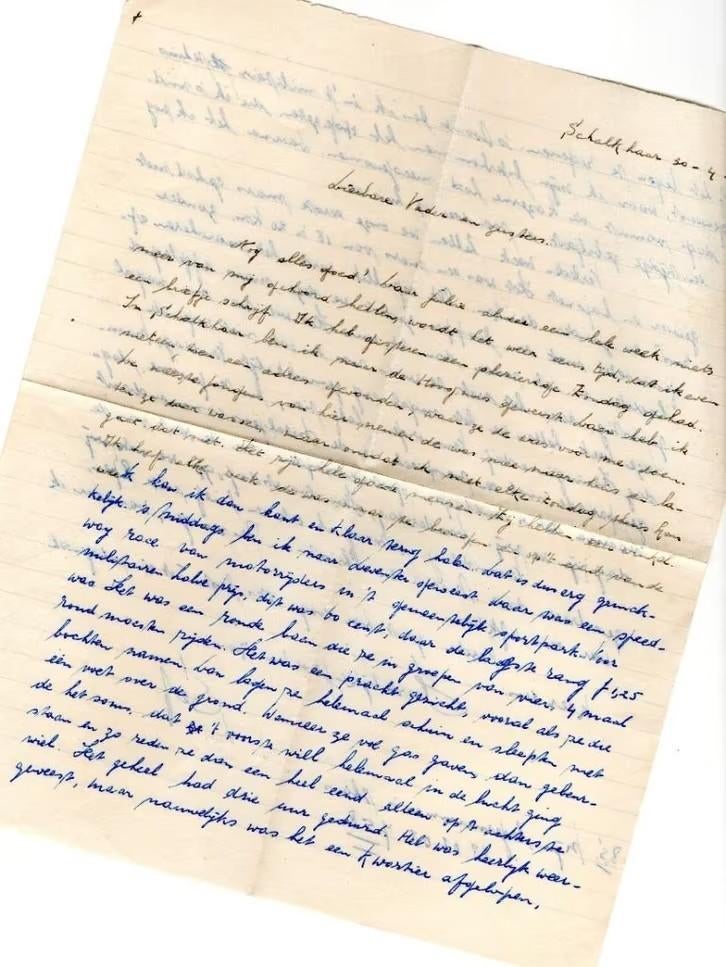 +
Schalkhaar 30-4-
Lieve Vader en zusters.
Nog alles goed! Daar jullie alweer een hele week niets
meer van mij gehoord hebben, wordt het weer eens tijd, dat ik even
een briefje schrijf. Ik heb gisteren een plezierige Zondag gehad.
In Schalkhaar ben ik naar de Hoogmis geweest. Daar heb ik
meteen een adres gevonden, waar ze de was voor me doen.
De meeste jongens van hier nemen de was mee naar huis en la-
ten ze daar wassen, maar omdat ik niet elke Zondag thuis kom
gaat dat niet. Het zijn hele goede mensen. Zij hebben een winkel.
Ik hoef elke week de was maar te brengen en op 't eind van de
week kan ik dan kant en klaar terug halen. Dat is dus erg gemak-
kelijk. 's Middags ben ik naar Deventer geweest. Daar was een speed-
way race van motorrijders in 't gemeentelijk sportpark. Voor
militairen halve prijs, dit was 60 cent, daar de laagste rang f 1,25
was. Het was een ronde baan die ze in groepen van vier 4 maal
rond moesten rijden. Het was een pracht gezicht, vooral als ze die
bochten namen. Dan lagen ze helemaal schuin en sleepten met
één voet over de grond. Wanneer ze vol gas gaven, dan gebeur-
de het soms, dat 't voorste wiel helemaal in de lucht ging
staan en zo reden ze dan een heel eind alleen op 't achterste
wiel. Het geheel had drie uur geduurd. Het was heerlijk weer-
geweest, maar nauwelijks was het een kwartier afgelopen,